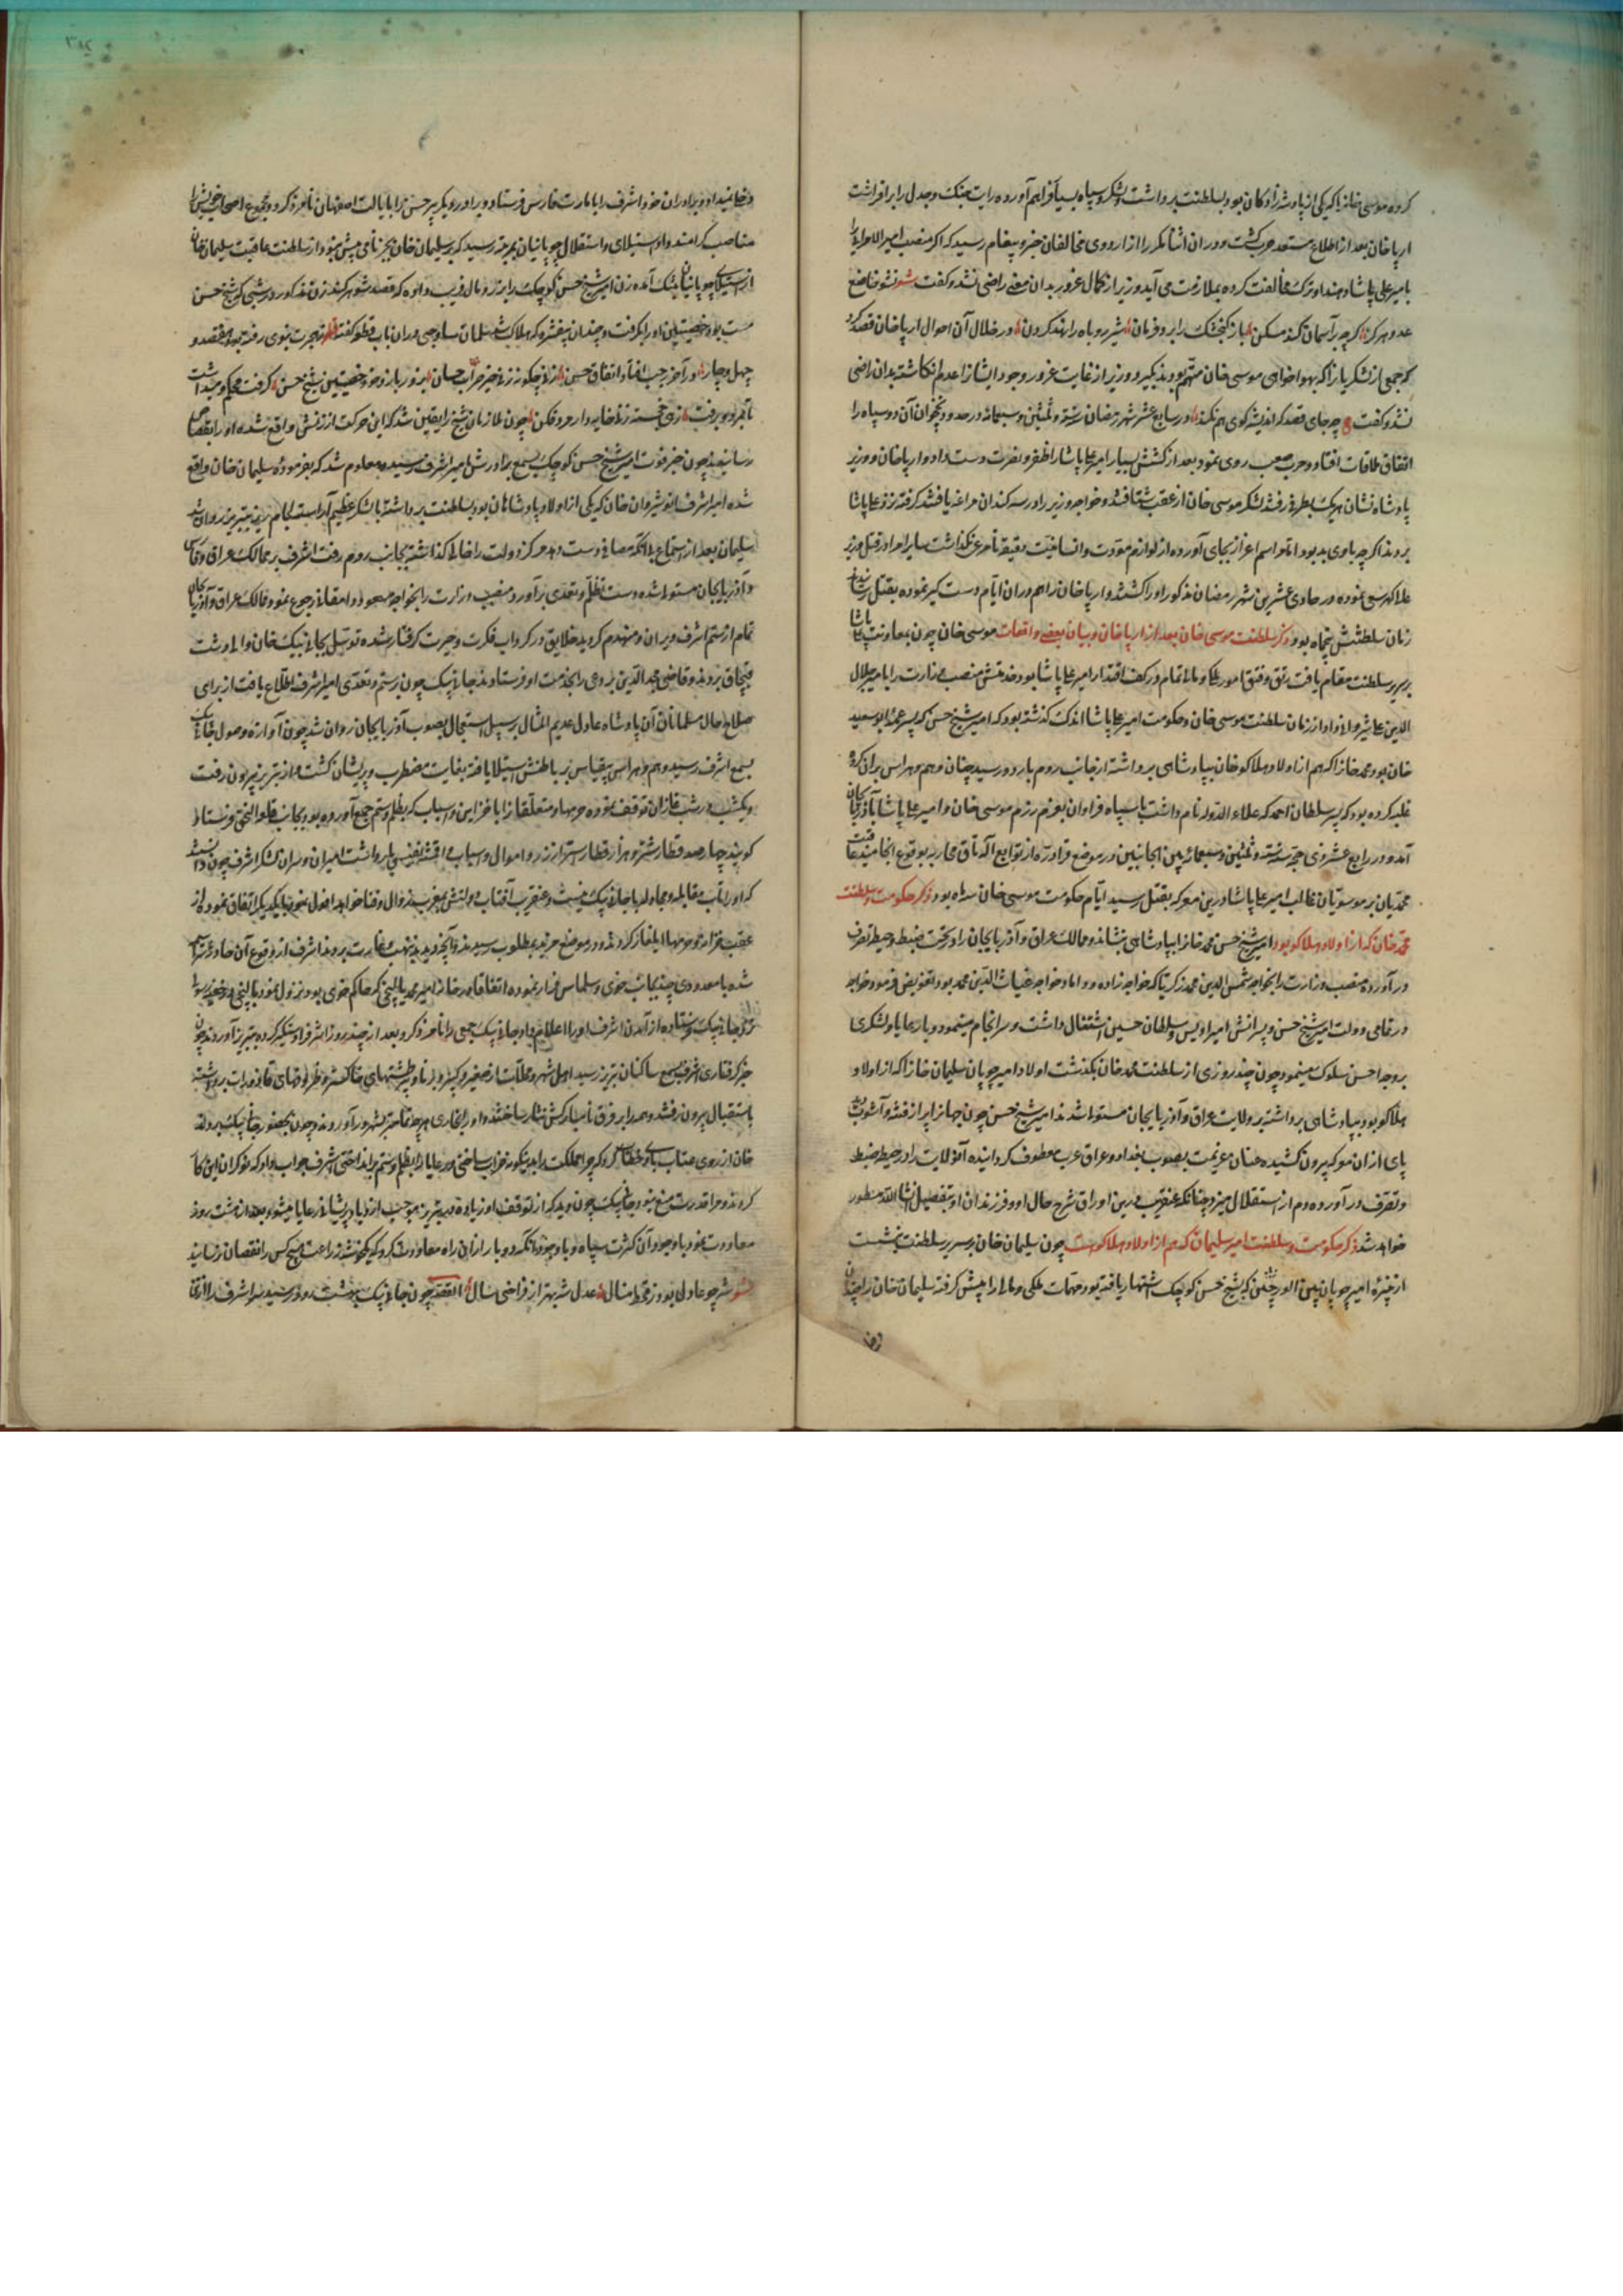 کرده موسی خانرا که یکی از پادشه زادکان بود بسلطنت برداشت و لشکر و سپاه بسیار فراهم آورده رایت جنک و جدل برابر افراشت
ارپا خان بعد از اطلاع مستعد حرب کشت و در ان اثنا مکرر از اردوی مخالفان خبر و پیغام رسید که اکر منصب امیر الامرایی را
بامیر علی پاشا دهند او ترک مخالفت کرده بملازمت می آید وزیر از کمال غرور بدان معنی راضی نشد و کفت شعر نشوم خاضع
عدو هرکز کرچه بر آسمان کند مسکن باز کنجشک را برد فرمان شیر روباه را نهد کردن در خلال آن احوال ارپا خان قصد کرد
که جمعی از لشکریانرا که بهواخواهی موسی خان متهم بودند بکیرد وزیر از غایت غرور وجود ایشانرا عدم انکاشته بدان راضی
نشد و کفت ع چه جای قصد که اندیشه کوی هم نکند در سابع عشر شهر رمضان سنه ست و ثلثین و سبعمائه در حدود آن دو سپاه را
اتفاق ملاقات افتاد و حرب صعب روی نمود بعد از کشش بسیار امیر علی پاشا را ظفر و نصرت دست داد و ارپا خان و وزیر
پادشاه نشان هر یک بطرفی رفتند لشکر موسی خان از عقب شتافتند و خواجه وزیر را در سه کندان مراغه یافتند کرفته نزد علی پاشا
بردند اکرچه باوی بد بود اما مراسم اعزاز بجای آورده از لوازم مودت و انسانیت دقیقه نامرعی نکذاشت سایر امرا در قتل وزیر
علا کهر سعی نموده در حادی عشرین شهر رمضان مذکور او را کشتند و ارپا خان را هم در ان ایام دست کیر نموده بقتل رسانیدند
زمان سلطنتش پنجماه بود ذکر سلطنت موسی خان بعد از ارپا خان و بیان بعضی واقعات موسی خان چون بمعاونت علی پاشا
بر سریر سلطنت مقام یافت رتق و فتق امور ملکی و مالی تمام در کف اقتدار امیر علی پاشا بود خدمتش منصب وزارت را بامیر جلال
الدین علی شیروانی داد از زمان سلطنت موسی خان و حکومت امیر علی پاشا اندک کذشته بود که امیر شیخ حسن که پسر عمه ابو سعید
خان بود محمد خانرا که هم از اولاد هلاکو خان بپادشاهی برداشته از جانب روم باردو رسید چنان وهم و هراس بران کروه
غلبه کرده بود که پسر سلطان احمد که علاء الدوله نام داشت با سپاه فراوان بعزم رزم موسی خان و امیر علی پاشا بآذربایجان
آمد و در رابع عشر ذی حجه سنه ست و ثلثین و سبعمائه بین الجانبین در موضع قرا دره از توابع الاتاق محاربه بوقوع انجامید عاقبت
محمدیان بر موسویان غالب امیر علی پاشا درین معرکه بقتل رسید ایام حکومت موسی خان سه ماه بود ذکر حکومت و سلطنت
محمد خان که از اولاد هلاکو بود امیر شیخ حسن محمد خانرا بپادشاهی بنشاند و ممالک عراق و آذربایجان را در تحت ضبط و حیطه تصرف
در آورد و منصب وزارت را بخواجه شمس الدین محمد زکریا که خواجه زاده و داماد خواجه غیاث الدین محمد بود تفویض فرمود خواجه
در تمامی دولت امیر شیخ حسن و پسرانش امیر اویس و سلطان حسین اشتغال داشت و سرانجام مینمود و با رعایا و لشکری
بر وجه احسن سلوک مینمود چون چند روزی از سلطنت محمد خان بکذشت اولاد امیر چوپان سلیمان خانرا که از اولاد
هلاکو بود بپادشاهی برداشته بر ولایت عراق و آذربایجان مستولی شدند امیر شیخ حسن چون جهانرا پر از فتنه و آشوب دید
پای از ان معرکه بیرون کشیده عنان عزیمت بصوب بغداد و عراق عرب معطوف کردانیده آن ولایت را در حیطه ضبط
و تصرف در آورده دم از استقلال میزد چنانکه عنقریب درین اوراق شرح حال او و فرزندان او بتفصیل انشا الله مسطور
خواهد شد ذکر حکومت و سلطنت امیر سلیمان که هم از اولاد هلاکوست چون سلیمان خان بر سریر سلطنت بنشست
از نبیره امیر چوپان که بشیخ حسن کوچک اشتهار یافته بود مهمات ملکی و مالی را پیش کرفته سلیمان خان را چندان
دخلی نمیداد و برادران خود اشرف را بامارت فارس فرستاد و برادر دیکر پیر حسن را بایالت اصفهان نامزد کرد و مجموع اصحاب خویش را
مناصب کرامند داد استیلای و استقلال چوپانیان بمرتبه رسید که بر سلیمان خان بجز نامی بیش نبود از سلطنت عاقبت سلیمان خان
از استیلای چوپانیان بتنک آمده زن امیر شیخ حسن کوچک را بزر و مال فریب داده که قصد شوهر کند زن مذکور در شبی که شیخ حسن
مست بود خصیتین او را بکرفت و چندان بیفشرد که هلاک شد سلمان ساوجی در ان باب قطعه کفته نظم ز هجرت نبوی رفته بود هفتصد و
چهل و چار در آخر رجب افتاد اتفاق حسن زنی چکونه زنی خیر خیرات حسان بزور بازوی خود خصیتین شیخ حسن کرفت محکم و میداشت
تا بمرد و برفت زهی خجسته زنی خایه دار مرد فکن چون ملازمان شیخ را یقین شد که این حرکت از زنش واقع شده او را بقصاص
رسانیدند چون خبر فوت امیر شیخ حسن کوچک بسمع برادرش امیر اشرف رسیده معلوم شد که بفرموده سلیمان خان واقع
شده امیر اشرف انوشیروان خان که یکی از اولاد پادشاهان بود بسلطنت برداشته با لشکر عظیم آراسته تبریز روان شد
سلیمان بعد از استماع دولت را خالی کذاشته بجانب روم رفت اشرف بر ممالک عراق و فارس
و آذربایجان مستولی شده دست تظلم و تعدی برآورد و منصب وزارت را بخواجه رجوع نمود ممالک عراق و آذربایجان
تمام از ستم اشرف ویران و منهدم کردید خلایق در کرداب فکرت و حیرت کرفتار شده توسل بجانی بیک خان والی دشت
قبچاق بردند و قاضی محی الدین بردعی را بخدمت او فرستادند جانی بیک چون بر ستم و تعدی امیر اشرف اطلاع یافت از برای
صلاح حال مسلمانان آن پادشاه عادل عدیم المثال بر سبیل استعجال بصوب آذربایجان روان شد چون آوازه وصول جانی بیک
بسمع اشرف رسید وهم و هراس بیقیاس بر باطنش استیلا یافته بغایت مضطرب و پریشان کشت و از تبریز بیرون رفت
و یکشب در شنب غازان توقف نموده حرمها و متعلقانرا با خزاین و اسباب که بظلم و ستم جمع آورده بود بجانب قلعه النجق فرستاد
کویند چهار صد قطار شتر و هزار قطار استر از زر و اموال و اسباب و اقمشه نفیس بار داشت امیران و سران لشکر اشرف چون دانستند
که او را تاب مقابله و مجادله با جانی بیک نیست و عنقریب آفتاب دولتش بمغرب زوال و فنا خواهد افول نمود با یکدیکر اتفاق نموده از
عقب خزانه و حرمها ایلغار کردند و در موضع مرند بمطلوب رسیدند و آنچه دیدند بنهب و غارت بردند اشرف از وقوع آن حادثه هراسان
شده با معدودی چند بجانب خوی و سلماس فرار نموده اتفاقا در خانه امیر محمد بالیقجی که حاکم خوی بود نزول نمود بالیقجی در خفیه رسولی
نزد جانی بیک فرستاده از آمدن اشرف او را اعلام داد جانی بیک جمعی را نامزد کرد بعد از چند روز اشرف را دستکیر کرده بتبریز آوردند چون
خبر کرفتاری اشرف بسمع ساکنان تبریز رسید اهل شهر و محلات از صغیر و کبیر و برنا و پیر طشتهای خاکستر و ظرفهای قاذورات برداشته
باستقبال بیرون رفتند و همه را بر فرق نامبارکش نثار ساختند و او را بخواری هرچه تمامتر بشهر درآوردند و چون بحضور جانی بیک بردند
خان از روی عتاب با وی خطاب کرد که چرا مملکت را بدینکونه خراب ساختی و رعایا را بظلم و ستم برانداختی اشرف جواب داد که نوکران این کار
کردند و مرا قدرت منع نبود جانی بیک چون دید که از توقف او زیاده در تبریز موجب ازدیاد پریشانی رعایا میشود بعد از هشت روز
معاودت نمود با وجود آن کثرت سپاه و با وجود آنکه دو بار از ان راه معاودت کرد که یکخوشه زراعت هیچ کس را نقصان نرسانید
شعر شه چو عادل بود ز قحط منال عدل شه بهتر از فراخی سال القصه چون جانی بیک بدشت رسید میر اشرف را